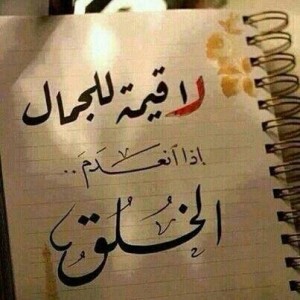 لا قيمة للجمال
إذا آنعدَمَ ..
الخُلُق